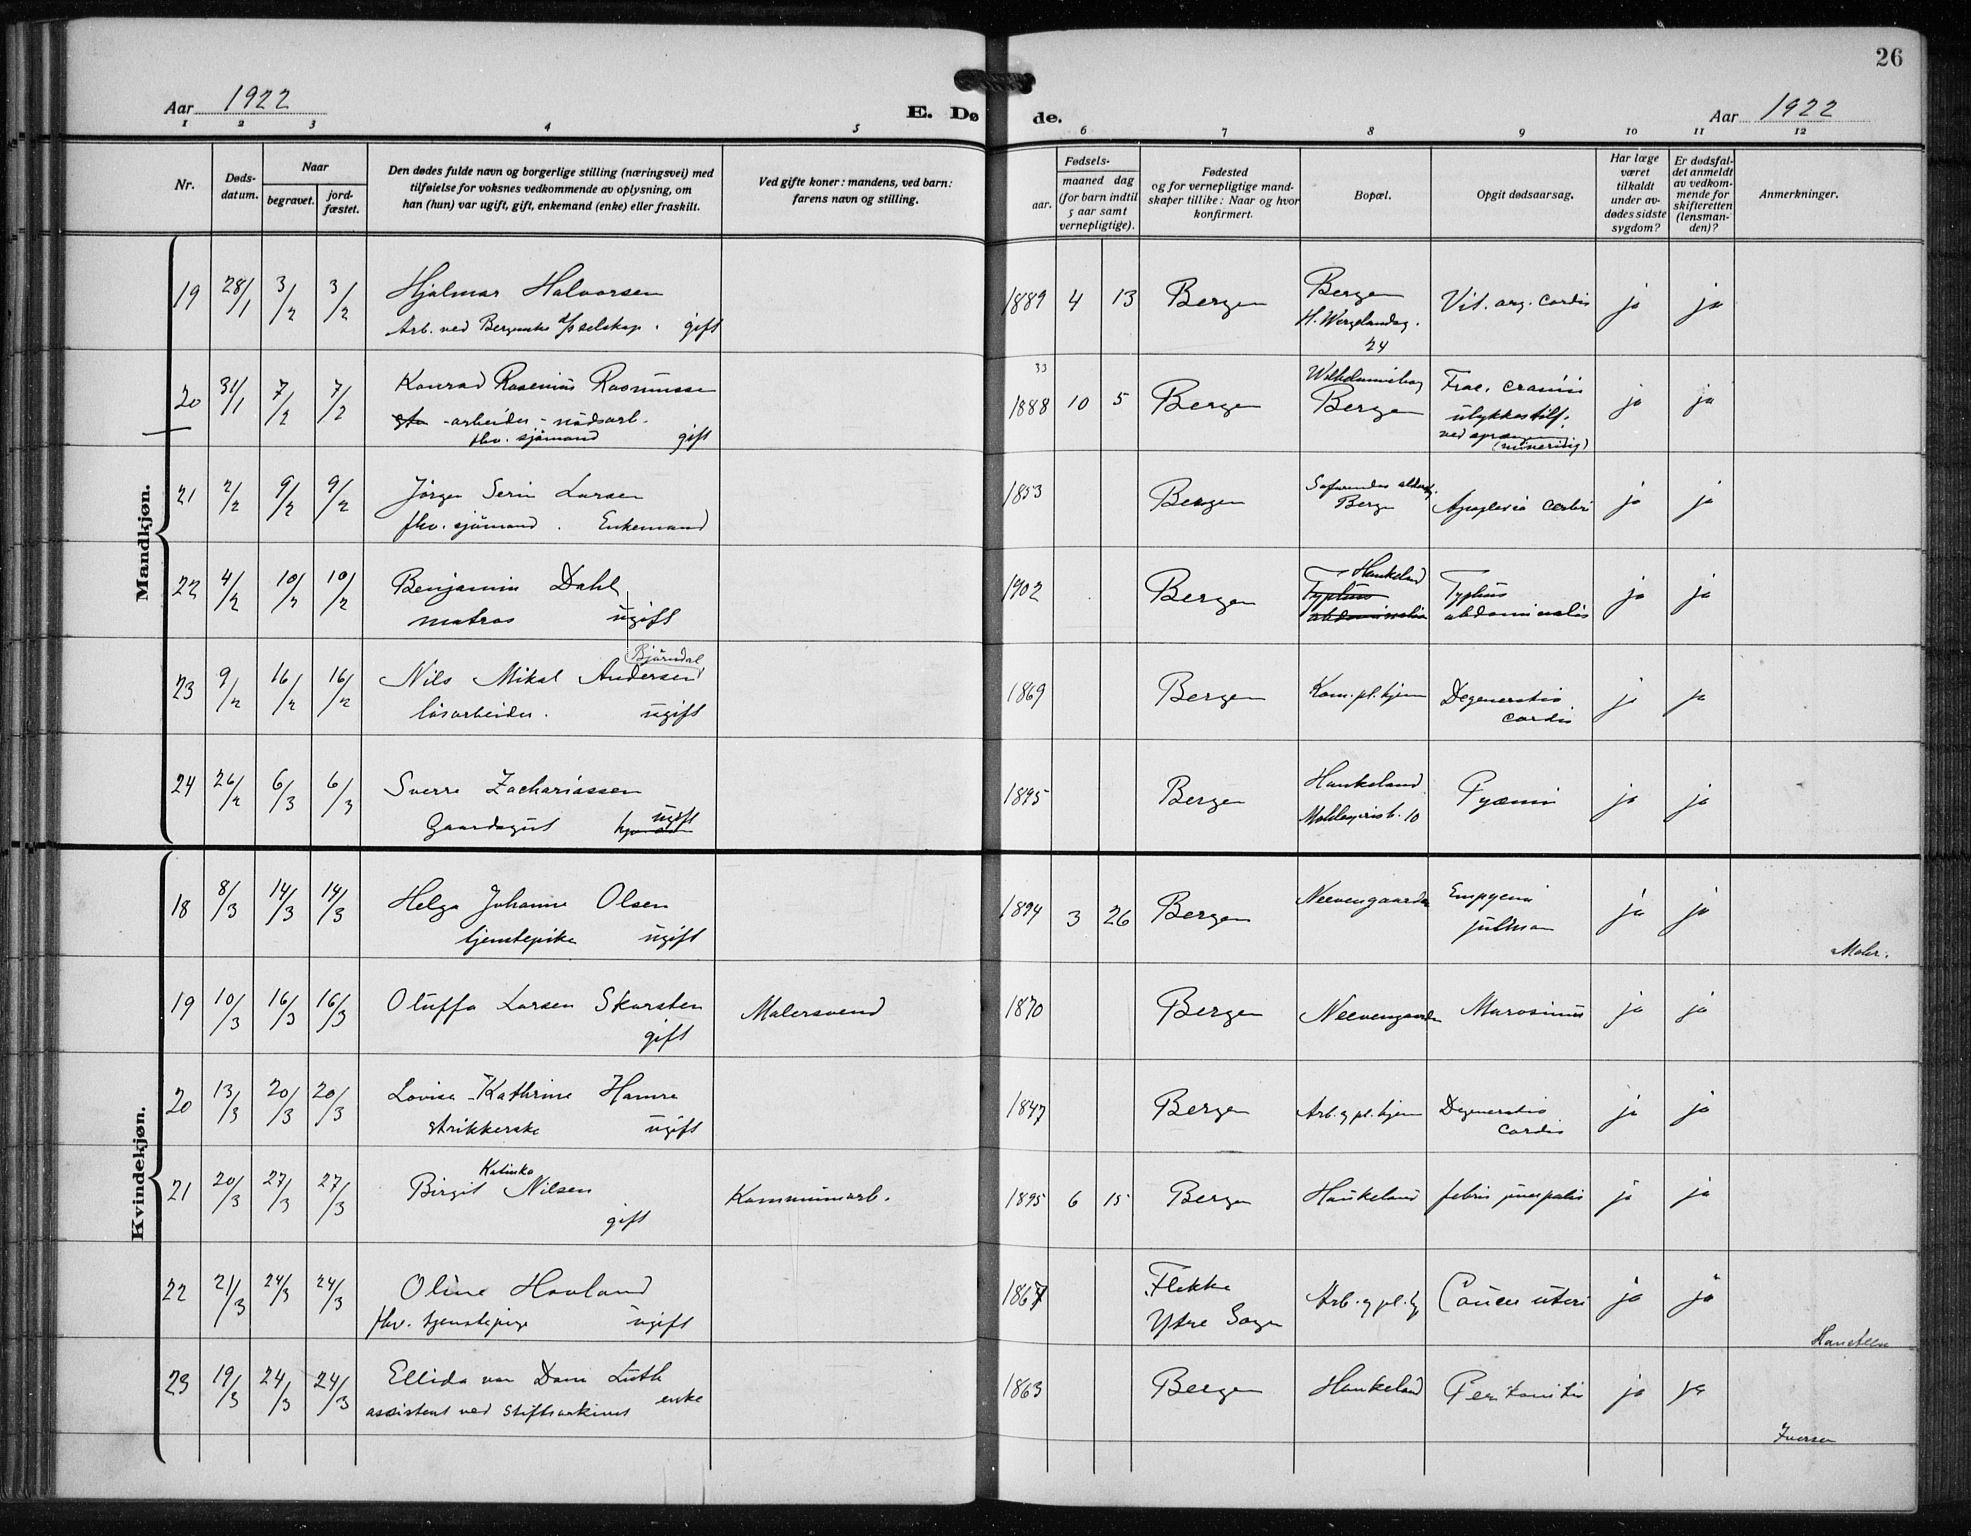 26
Aar 1922
E. Dø de.
Aar 1922
1 2 3 4 5 6 7 8 9 10 11 12
Nr.
Døds-
datum.
Naar
begravet.
jord-
fæstet.
Den dødes fulde navn og borgerlige stilling (næringsvei) med
tilføielse for voksnes vedkommende av oplysning, om
han (hun) var ugift, gift, enkemand (enke) eller fraskilt.
Ved gifte koner: mandens, ved barn:
farens navn og stilling.
Fødsels-
aar.
maaned dag
(for barn indtil
5 aar samt
vernepligtige).
Fødested
og for vernepligtige mand-
skaper tillike: Naar og hvor
konfirmert.
Bopæl.
Opgit dødsaarsag.
Har læge
været
tilkaldt
under av-
dødes sidste
sygdom?
Er dødsfal-
det anmeldt
av vedkom-
mende for
skifteretten
(lensman-
den)?
Anmerkninger.
Mandkjøn.
19 28/1 3/2 3/2 Hjalmar Halvorsen 1889 4 13 Bergen Bergen Vit. org. cordis ja ja
Arb. ved Bergenske d/s selskap. gift H. Wergelandsg.
24
33
20 31/1 7/2 7/2 Konrad Rosenius Rasmussen 1888 10 5 Bergen Bergen Frac. cranii ja ja
arbeider - nödsarb. ulykkestilf.
fhv. sjömand gift ved
21 2/2 9/2 9/2 Jörgen Serin Larsen 1853 Bergen Bergen Apoplexia cerebri ja ja
fhv. sjömand. Enkemand
22 4/2 10/2 10/2 Benjamin Dahl 1902 Bergen Haukeland Typhus ja ja
matros ugift Typhus abdominalis abdominalis
23 9/2 16/2 16/2 Nils Mikal Andersen Björndal 1869 Bergen Kom. pl. hjem Degeneratio ja ja
lösarbeider. ugift cordis
24 26/2 6/3 6/3 Sverre Zachariassen 1895 Bergen Haukeland Pyæmi ja ja
Gaardsgut ugift 10
Kvindekjøn.
18 8/3 14/3 14/3 Helga Johanne Olsen 1894 3 26 Bergen Neevengaarden Empyema ja ja
tjenestepike ugift
Maler.
19 10/3 16/3 16/3 Oluffa Larsen Skarsten Malersvend 1870 Bergen Neevengaarden ja ja
gift
20 13/3 20/3 20/3 Lovise Kathrine Hamre 1847 Bergen Arb. og pl. hjem Degeneratio ja ja
strikkerske ugift cordis
21 20/3 27/3 27/3 Birgit Katinka Nilsen Kommunarb. 1895 6 15 Bergen Haukeland febris ja ja
gift
22 21/3 24/3 24/3 Oline Havland 1867 Flekke Arb. og pl. hj Cancer uteri ja ja
fhv. tjenestepige ugift Ytre Sogn
23 19/3 24/3 24/3 Ellida van Dam Luth 1863 Bergen Haukeland Peritonitis ja ja
assistent ved Stiftsarkivet enke
Iversen